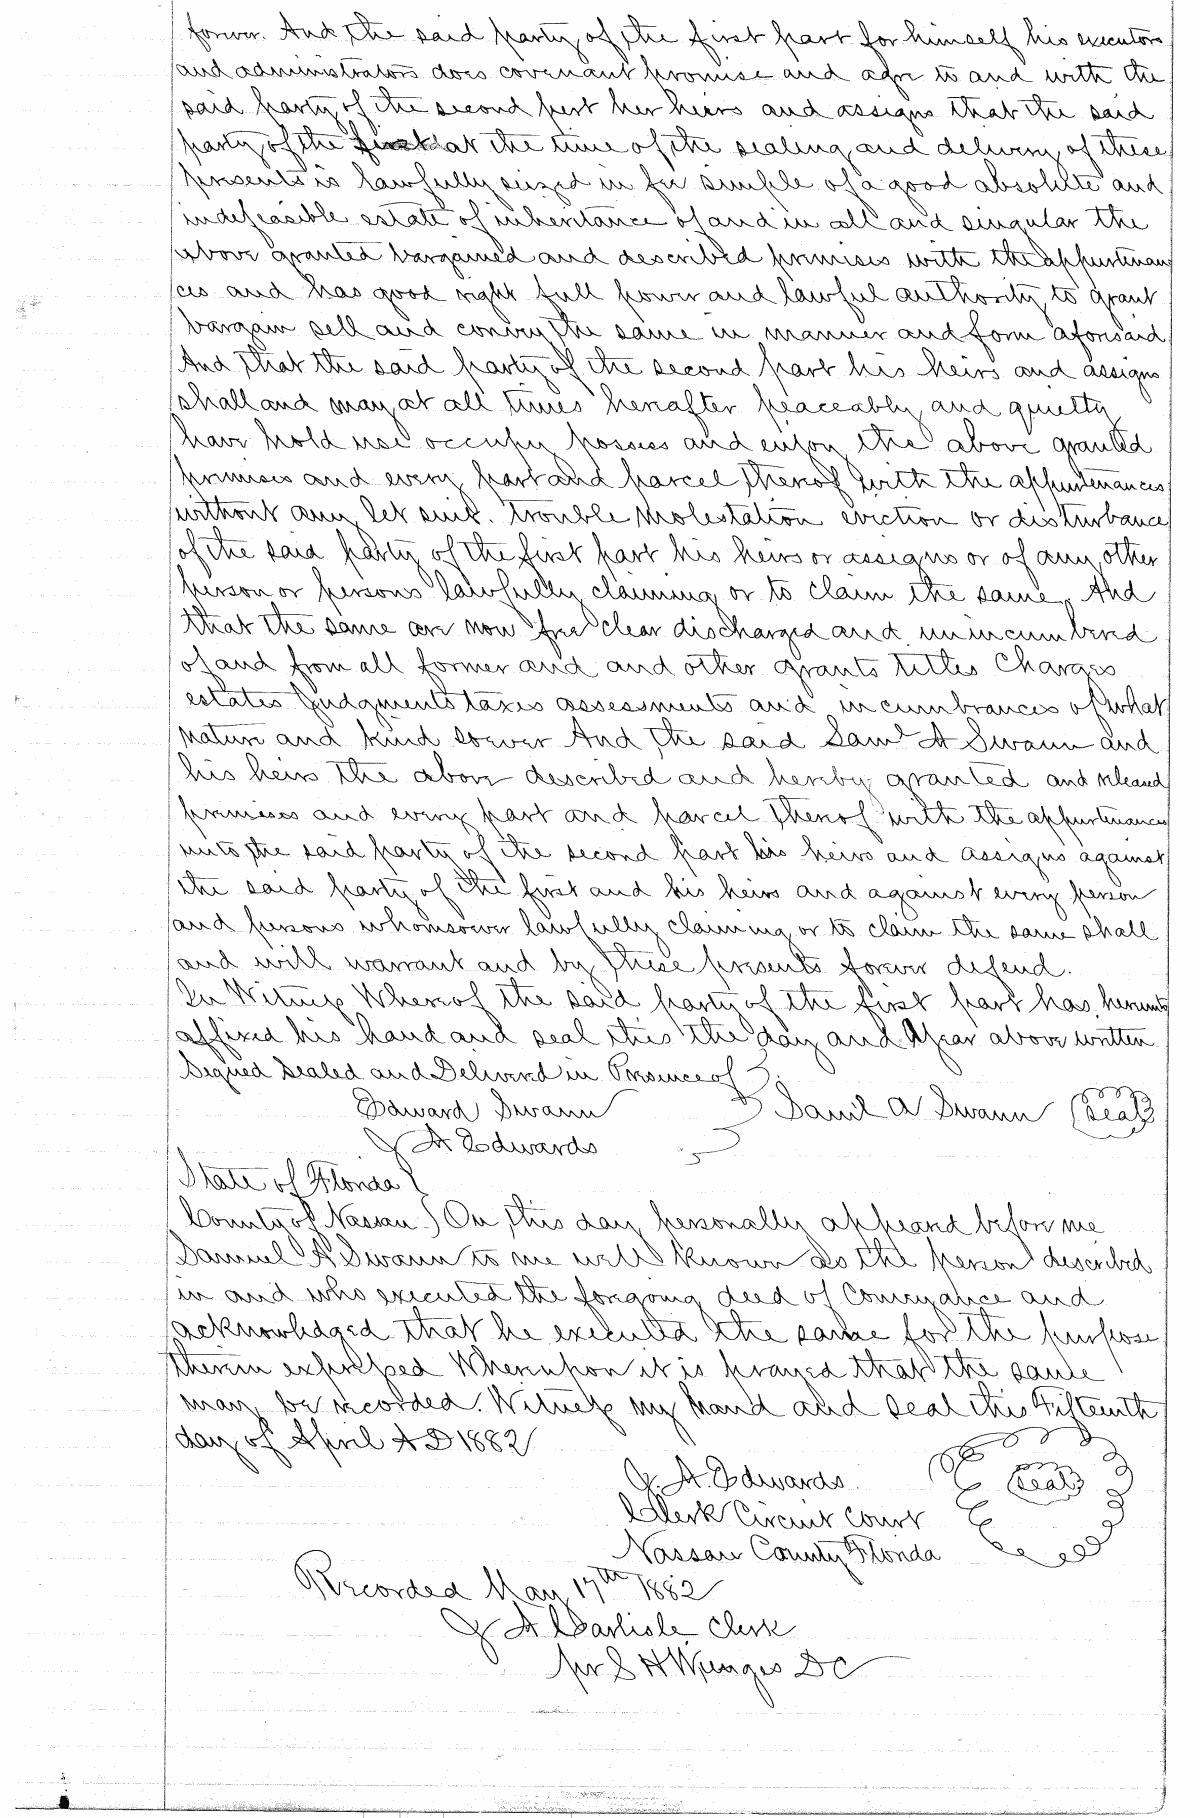 forever. And the said party of the first part for himself his executors
and administrators does covenant promise and agre to and with the
said party of the second part her heirs and assigns that the said
party of the first at the time of the sealing and delivery of these
presents is lawfully seized in fee simple of a good absolute and
indefeasible estate of inheritance of and in all and singular the
above granted bargained and described premises with the appurtenan
ces and has good right full power and lawful authority to grant
bargain sell and convey the same in manner and form aforesaid
And that the said party of the second part his heirs and assigns
shall and may at all times hereafter peaceably and quietly
have hold use occupy possess and enjoy the above granted
premises and every part and parcel thereof with the appurtenances
without any let suit. trouble molestation eviction or disturbance
of the said party of the first part his heirs or assigns or of any other
person or persons lawfully claiming or to claim the same. And
that the same are now free clear discharged and unincumbered
of and from all former and and other grants titles Charges
estates Judgments taxes assessments and incumbrances of what
nature and kind soever And the said Saml A Swann and
his heirs the above described and hereby granted and released
premises and every part and parcel thereof with the appurtenances
unto the said party of the second part his heirs and assigns against
the said party of the first and his heirs and against every person
and persons whomsoever lawfully claiming or to claim the same shall
and will warrant and by these presents forever defend.
In Witness Whereof the said party of the first part has hereunto
affixed his hand and seal this the day and Year above written
Signed Sealed and Delivered in Presence of
Edward Swann Saml A Swann (Seal)
J A Edwards
State of Florida
County of Nassau) On this day personally appeared before me
Samuel A Swann to me well known as the person described
in and who executed the forgoing deed of Conveyance and
acknowledged that he executed the same for the purpose
therein expressed Whereupon it is prayed that the same
may be recorded. Witness my hand and seal this Fifteenth
day of April A D 1882
J. A. Edwards (Seal)
Clerk Circuit Court
Nassau County Florida
Recorded May 17th 1882
J A Carlisle Clerk
pr S H DC